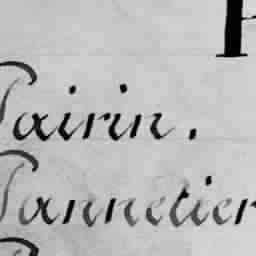 P
Pairin.
Pannetier